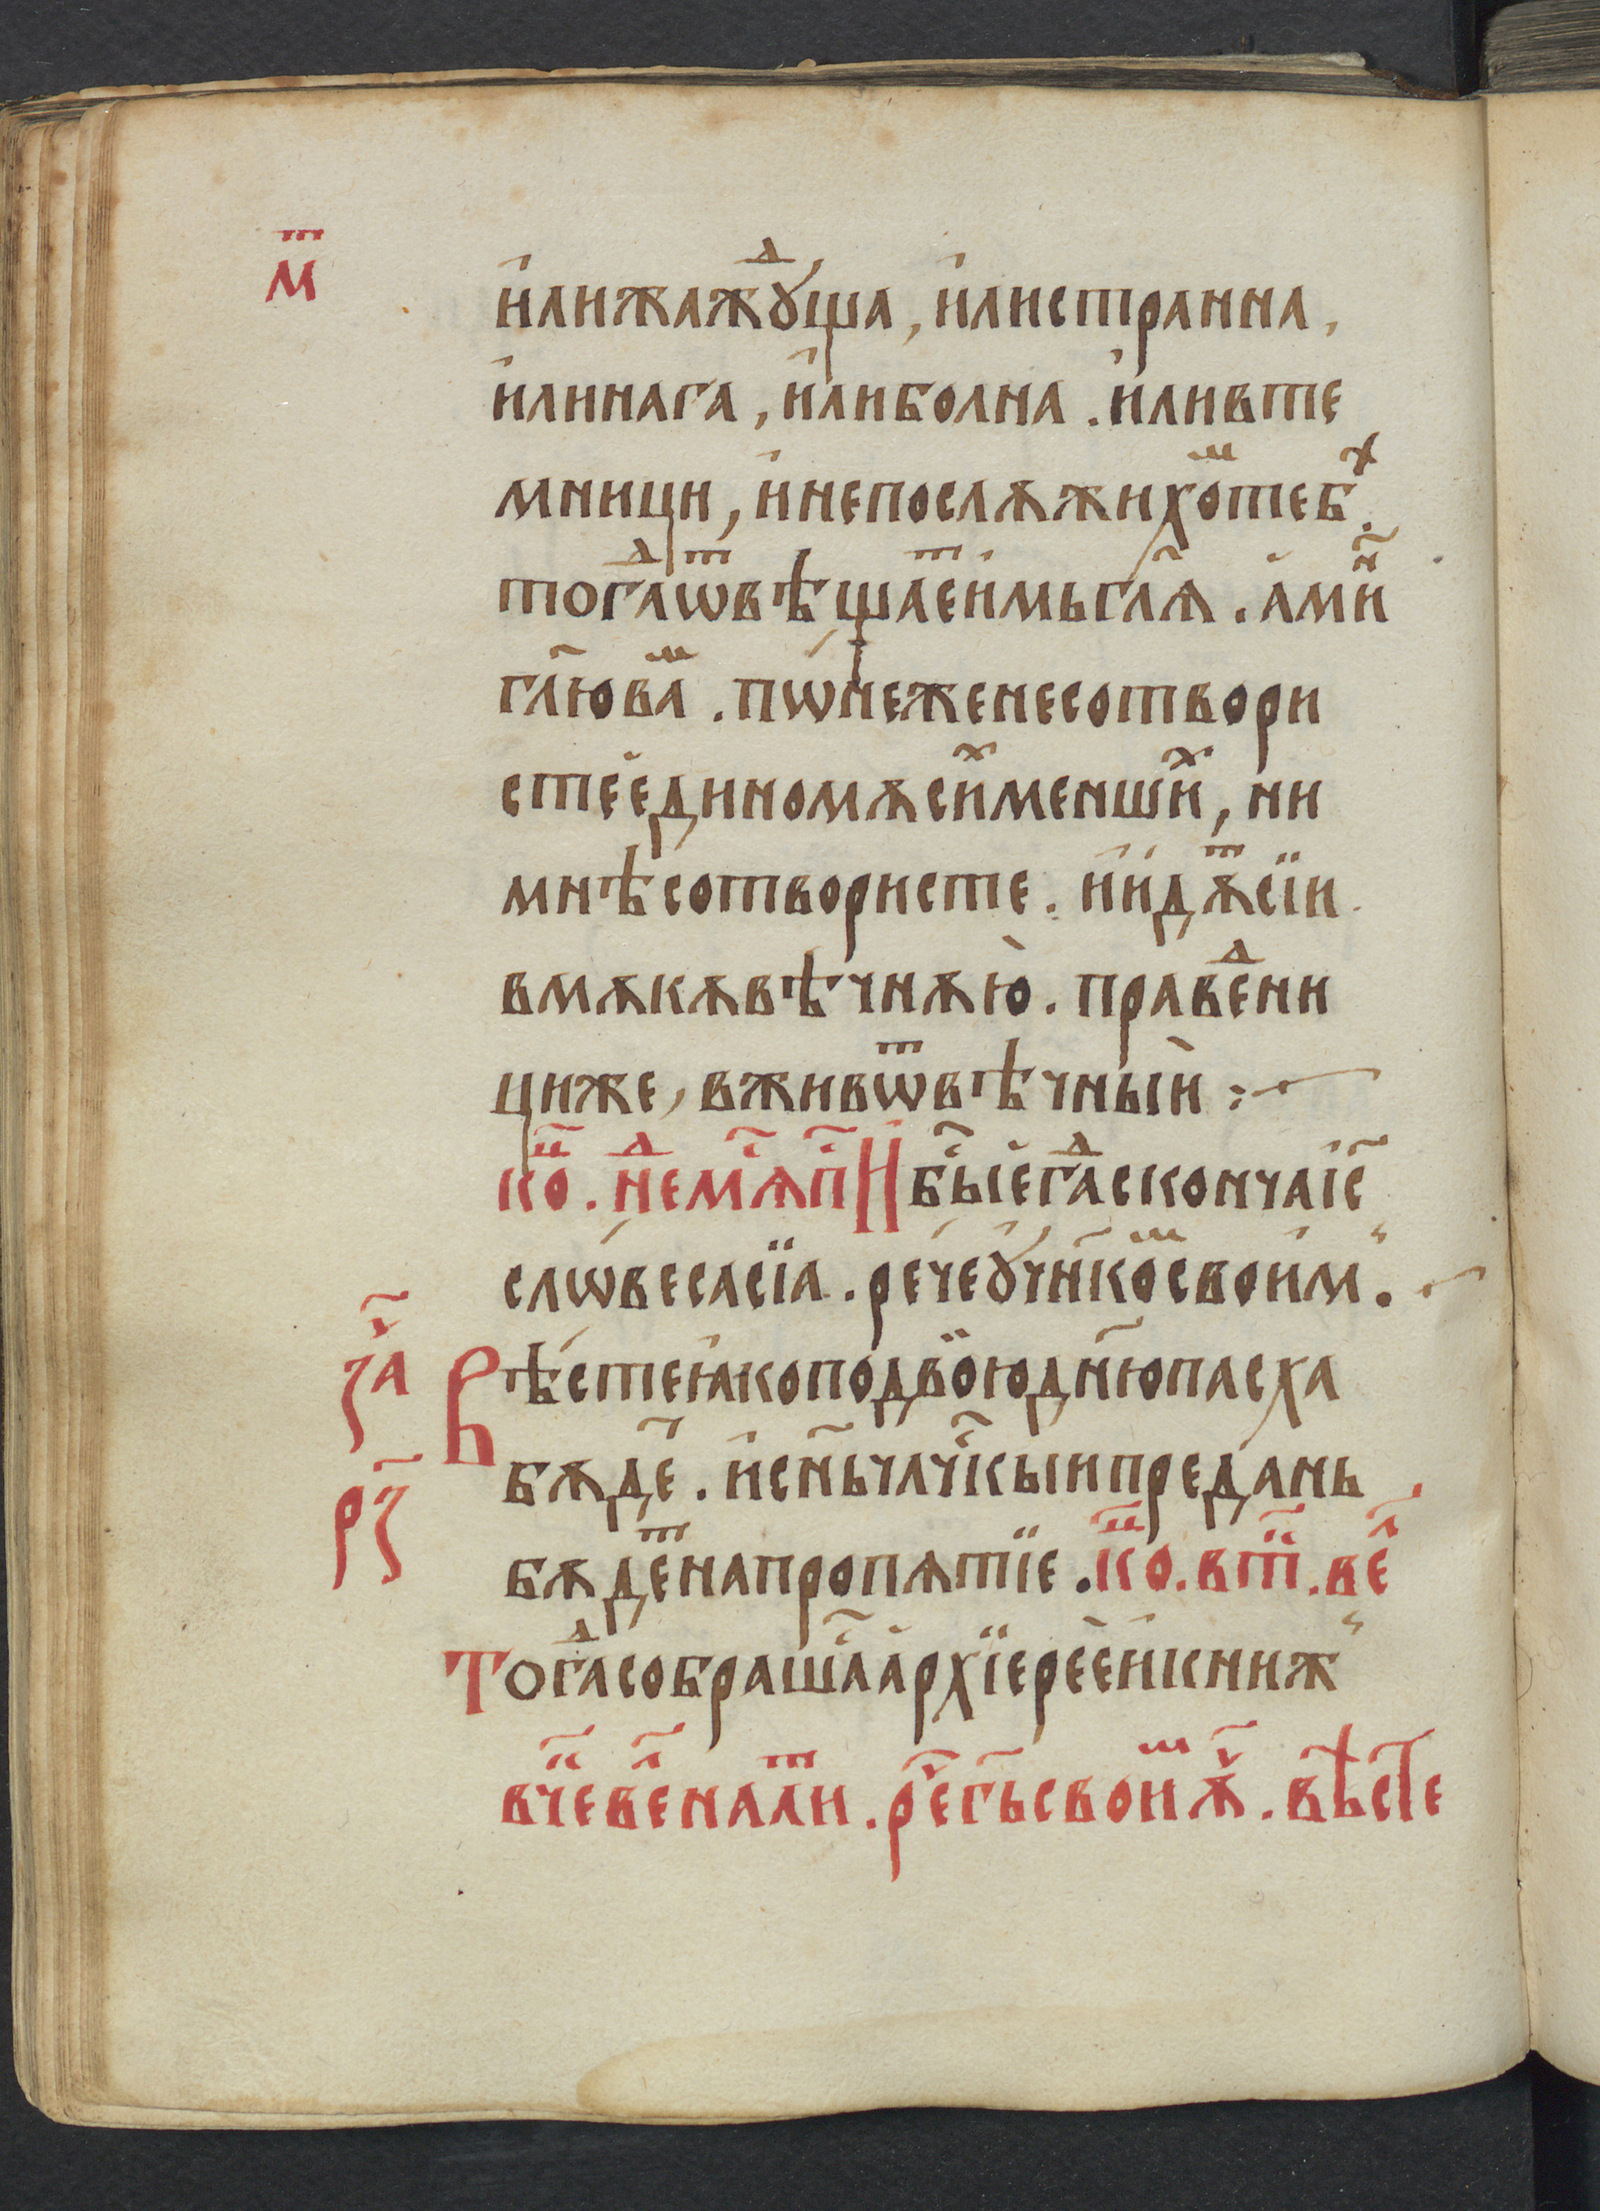 мⷮ
и҆лижажⷣꙋ́ща, и҆листранна,
и҆линага, и҆либолна. и҆ливте
мници, и҆непослѫжихоⷨтебⷯ.
тогⷣаѿвѣщаеⷮи҆мьгл҃ѧ. а҆миⷩ҇
гл҃ювⷨа. пѡ́неженесотвори
стеє҆диномѫсиⷯменшиⷯ, ни
мнѣсотвористе. и҆и҆дѫⷮсїи
вмѫкѫвѣчнѫю. правеⷣни
циже, вживѿвѣчныи:
коⷰ҇. неⷣ мѧⷭ҇пⷭ҇ И быⷭ҇егⷣаскончаіс҃
слѡ́весасїа. речеꙋ҆чн҃коⷨсвои҆м.
заⷱ҇
Вѣстеꙗ҆коподвоюдн҃юпасха
бѫде҃. и҆сн҃ьчл҃чⷭ҇кыипредань
рз҃
бѫдеⷮнапропѧтїе. коⷰ҇. втⷰ҇. веⷧ҇
Тогⷣасобрашаа҆рхїерее҆и҆книж
вчеⷰ҇веⷧ҇наⷮли. реⷱ҇гь҃своиⷨѫⷱ҇. вѣсте